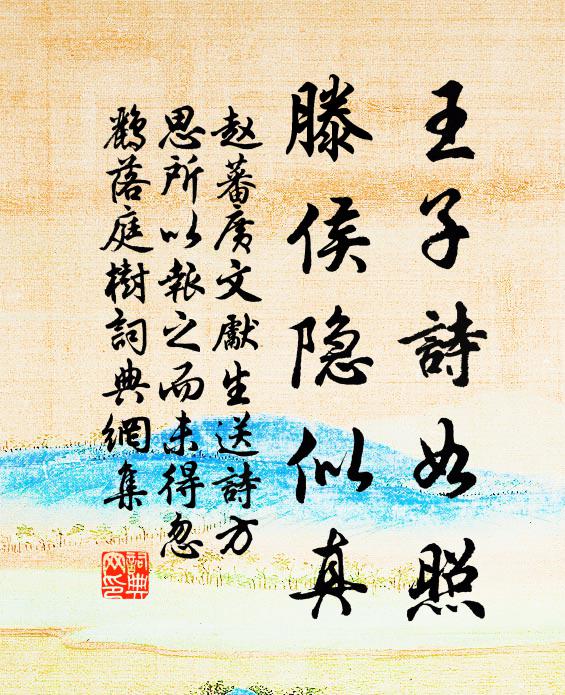 王子詩如照
滕侯隐似真
赵蕃廣文獻生送詩方
思所以報之而未得忽
鶴落庭樹詞典網集
詞典